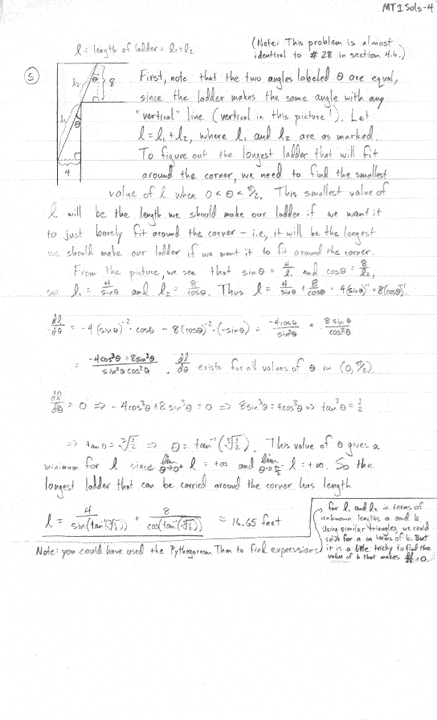 MT1Sols-4
l = length of ladder = l₁+l₂
(Note: This problem is almost
identical to #28 in section 4.6.)
⑤
l₂ θ 8
l₁ θ
4
First, note that the two angles labeled θ are equal,
since the ladder makes the same angle with any
"vertical" line (vertical in this picture!). Let
l = l₁+l₂, where l₁ and l₂ are as marked.
To figure out the longest ladder that will fit
around the corner, we need to find the smallest
value of l when 0<θ<π/2. This smallest value of
l will be the length we should make our ladder if we want it
to just barely fit around the corner – i.e., it will be the longest
we should make our ladder if we want it to fit around the corner.
From the picture, we see that sinθ = 4/l₁ and cosθ = 8/l₂,
so l₁ = 4/sinθ and l₂ = 8/cosθ. Thus l = 4/sinθ + 8/cosθ = 4(sinθ)⁻¹+8(cosθ)⁻¹.
dl/dθ = -4(sinθ)⁻²·cosθ - 8(cosθ)⁻²·(-sinθ) = -4cosθ/sin²θ + 8sinθ/cos²θ
= -4cos³θ+8sin³θ/sin²θcos²θ. dl/dθ exists for all values of θ in (0,π/2).
dl/dθ = 0 ⇒ -4cos³θ+8sin³θ=0 ⇒ 8sin³θ=4cos³θ ⇒ tan³θ=1/2
⇒ tanθ = ∛(1/2) ⇒ θ = tan⁻¹(∛(1/2)). This value of θ gives a
minimum for l since lim θ→0⁺ l = +∞ and lim θ→π/2⁻ l = +∞. So the
longest ladder that can be carried around the corner has length
l = 4/sin(tan⁻¹(∛(1/2))) + 8/cos(tan⁻¹(∛(1/2))) ≈ 16.65 feet
Note: you could have used the Pythagorean Thm to find expressions
for l₁ and l₂ in terms of
unknown lengths a and b.
Using similar triangles, we could
solve for a in terms of b. But
it is a little tricky to find the
value of b that makes dl/db=0.